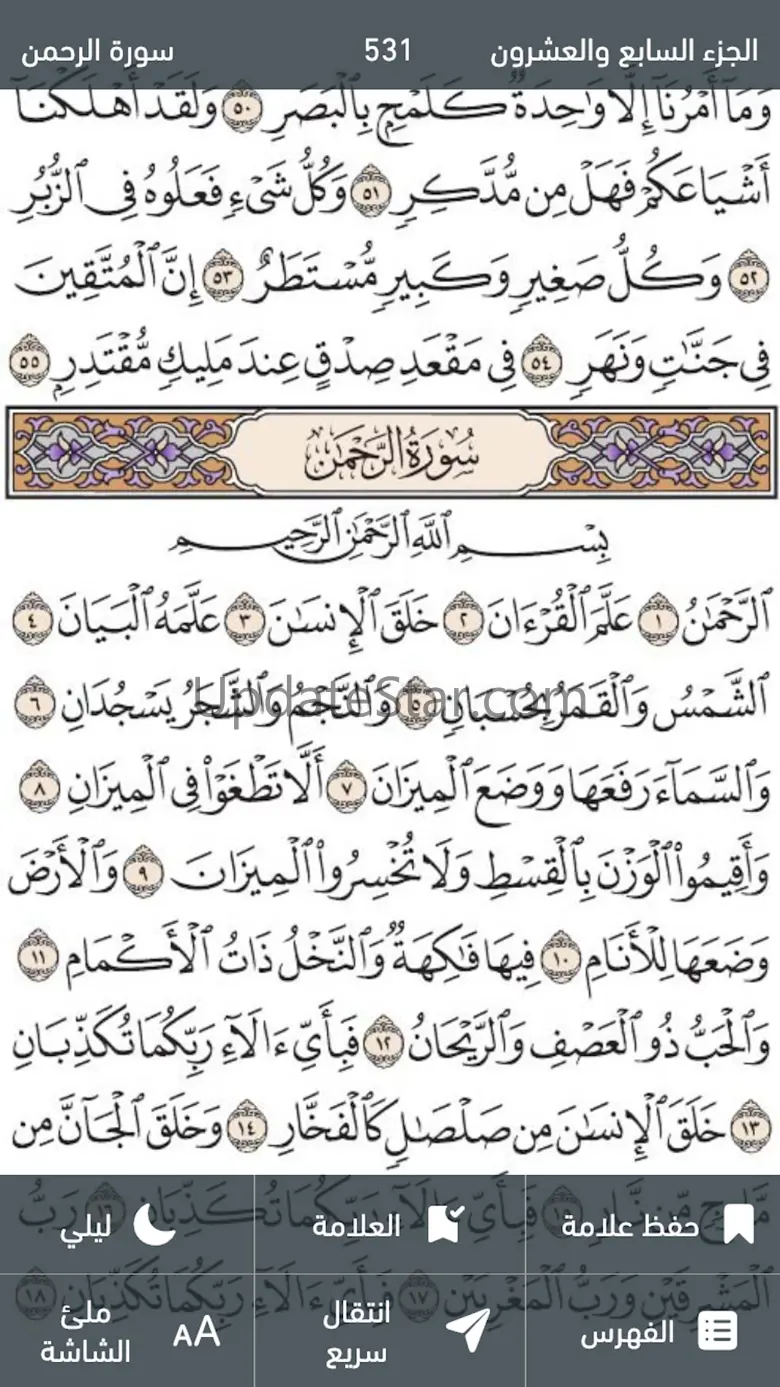 الجزء السابع والعشرون 531 سورة الرحمن
وَمَآ أَمْرُنَآ إِلَّا وَٰحِدَةٌ كَلَمْحٍۭ بِٱلْبَصَرِ ٥٠ وَلَقَدْ أَهْلَكْنَآ
أَشْيَاعَكُمْ فَهَلْ مِن مُّدَّكِرٍ ٥١ وَكُلُّ شَىْءٍ فَعَلُوهُ فِى ٱلزُّبُرِ
٥٢ وَكُلُّ صَغِيرٍ وَكَبِيرٍ مُّسْتَطَرٌ ٥٣ إِنَّ ٱلْمُتَّقِينَ
فِى جَنَّٰتٍ وَنَهَرٍ ٥٤ فِى مَقْعَدِ صِدْقٍ عِندَ مَلِيكٍ مُّقْتَدِرٍۭ ٥٥
سُورَةُ الرَّحْمَٰن
بِسْمِ ٱللَّهِ ٱلرَّحْمَٰنِ ٱلرَّحِيمِ
ٱلرَّحْمَٰنُ ١ عَلَّمَ ٱلْقُرْءَانَ ٢ خَلَقَ ٱلْإِنسَٰنَ ٣ عَلَّمَهُ ٱلْبَيَانَ ٤
ٱلشَّمْسُ وَٱلْقَمَرُ بِحُسْبَانٍ ٥ وَٱلنَّجْمُ وَٱلشَّجَرُ يَسْجُدَانِ ٦
UpdateStar.com
وَٱلسَّمَآءَ رَفَعَهَا وَوَضَعَ ٱلْمِيزَانَ ٧ أَلَّا تَطْغَوْا۟ فِى ٱلْمِيزَانِ ٨
وَأَقِيمُوا۟ ٱلْوَزْنَ بِٱلْقِسْطِ وَلَا تُخْسِرُوا۟ ٱلْمِيزَانَ ٩ وَٱلْأَرْضَ
وَضَعَهَا لِلْأَنَامِ ١٠ فِيهَا فَٰكِهَةٌ وَٱلنَّخْلُ ذَاتُ ٱلْأَكْمَامِ ١١
وَٱلْحَبُّ ذُو ٱلْعَصْفِ وَٱلرَّيْحَانُ ١٢ فَبِأَىِّ ءَالَآءِ رَبِّكُمَا تُكَذِّبَانِ
١٣ خَلَقَ ٱلْإِنسَٰنَ مِن صَلْصَٰلٍ كَٱلْفَخَّارِ ١٤ وَخَلَقَ ٱلْجَآنَّ مِن
مَّارِجٍ مِّن نَّارٍ ١٥ فَبِأَىِّ ءَالَآءِ رَبِّكُمَا تُكَذِّبَانِ ١٦ رَبُّ
حفظ علامة العلامة ليلي
ٱلْمَشْرِقَيْنِ وَرَبُّ ٱلْمَغْرِبَيْنِ ١٧ فَبِأَىِّ ءَالَآءِ رَبِّكُمَا تُكَذِّبَانِ ١٨
الفهرس
انتقال
سريع
AA
ملئ
الشاشة